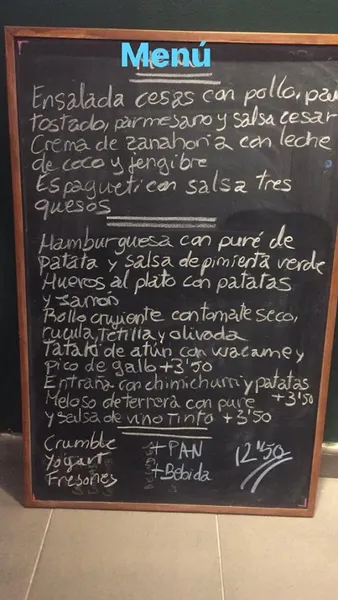 Menú
Ensalada cesas con pollo, pan
tostado, parmesano y salsa cesar
Crema de zanahoria con leche
de coco y jengibre
Espagueti con salsa tres
quesos
Hamburguesa con puré de
patata y salsa de pimienta verde
Huevos al plato con patatas
y Jamon
Rollo crujiente con tomate seco,
rucula, Tetilla y olivada
Tataki de atún con wacame y
pico de gallo +3'50
Entraña con chimichurri y patatas
+3'50
Meloso de terrera con pure
y salsa de vino Tinto +3'50
Crumble
Yogurt
Fresones
+ PAN
+ Bebida
12'50